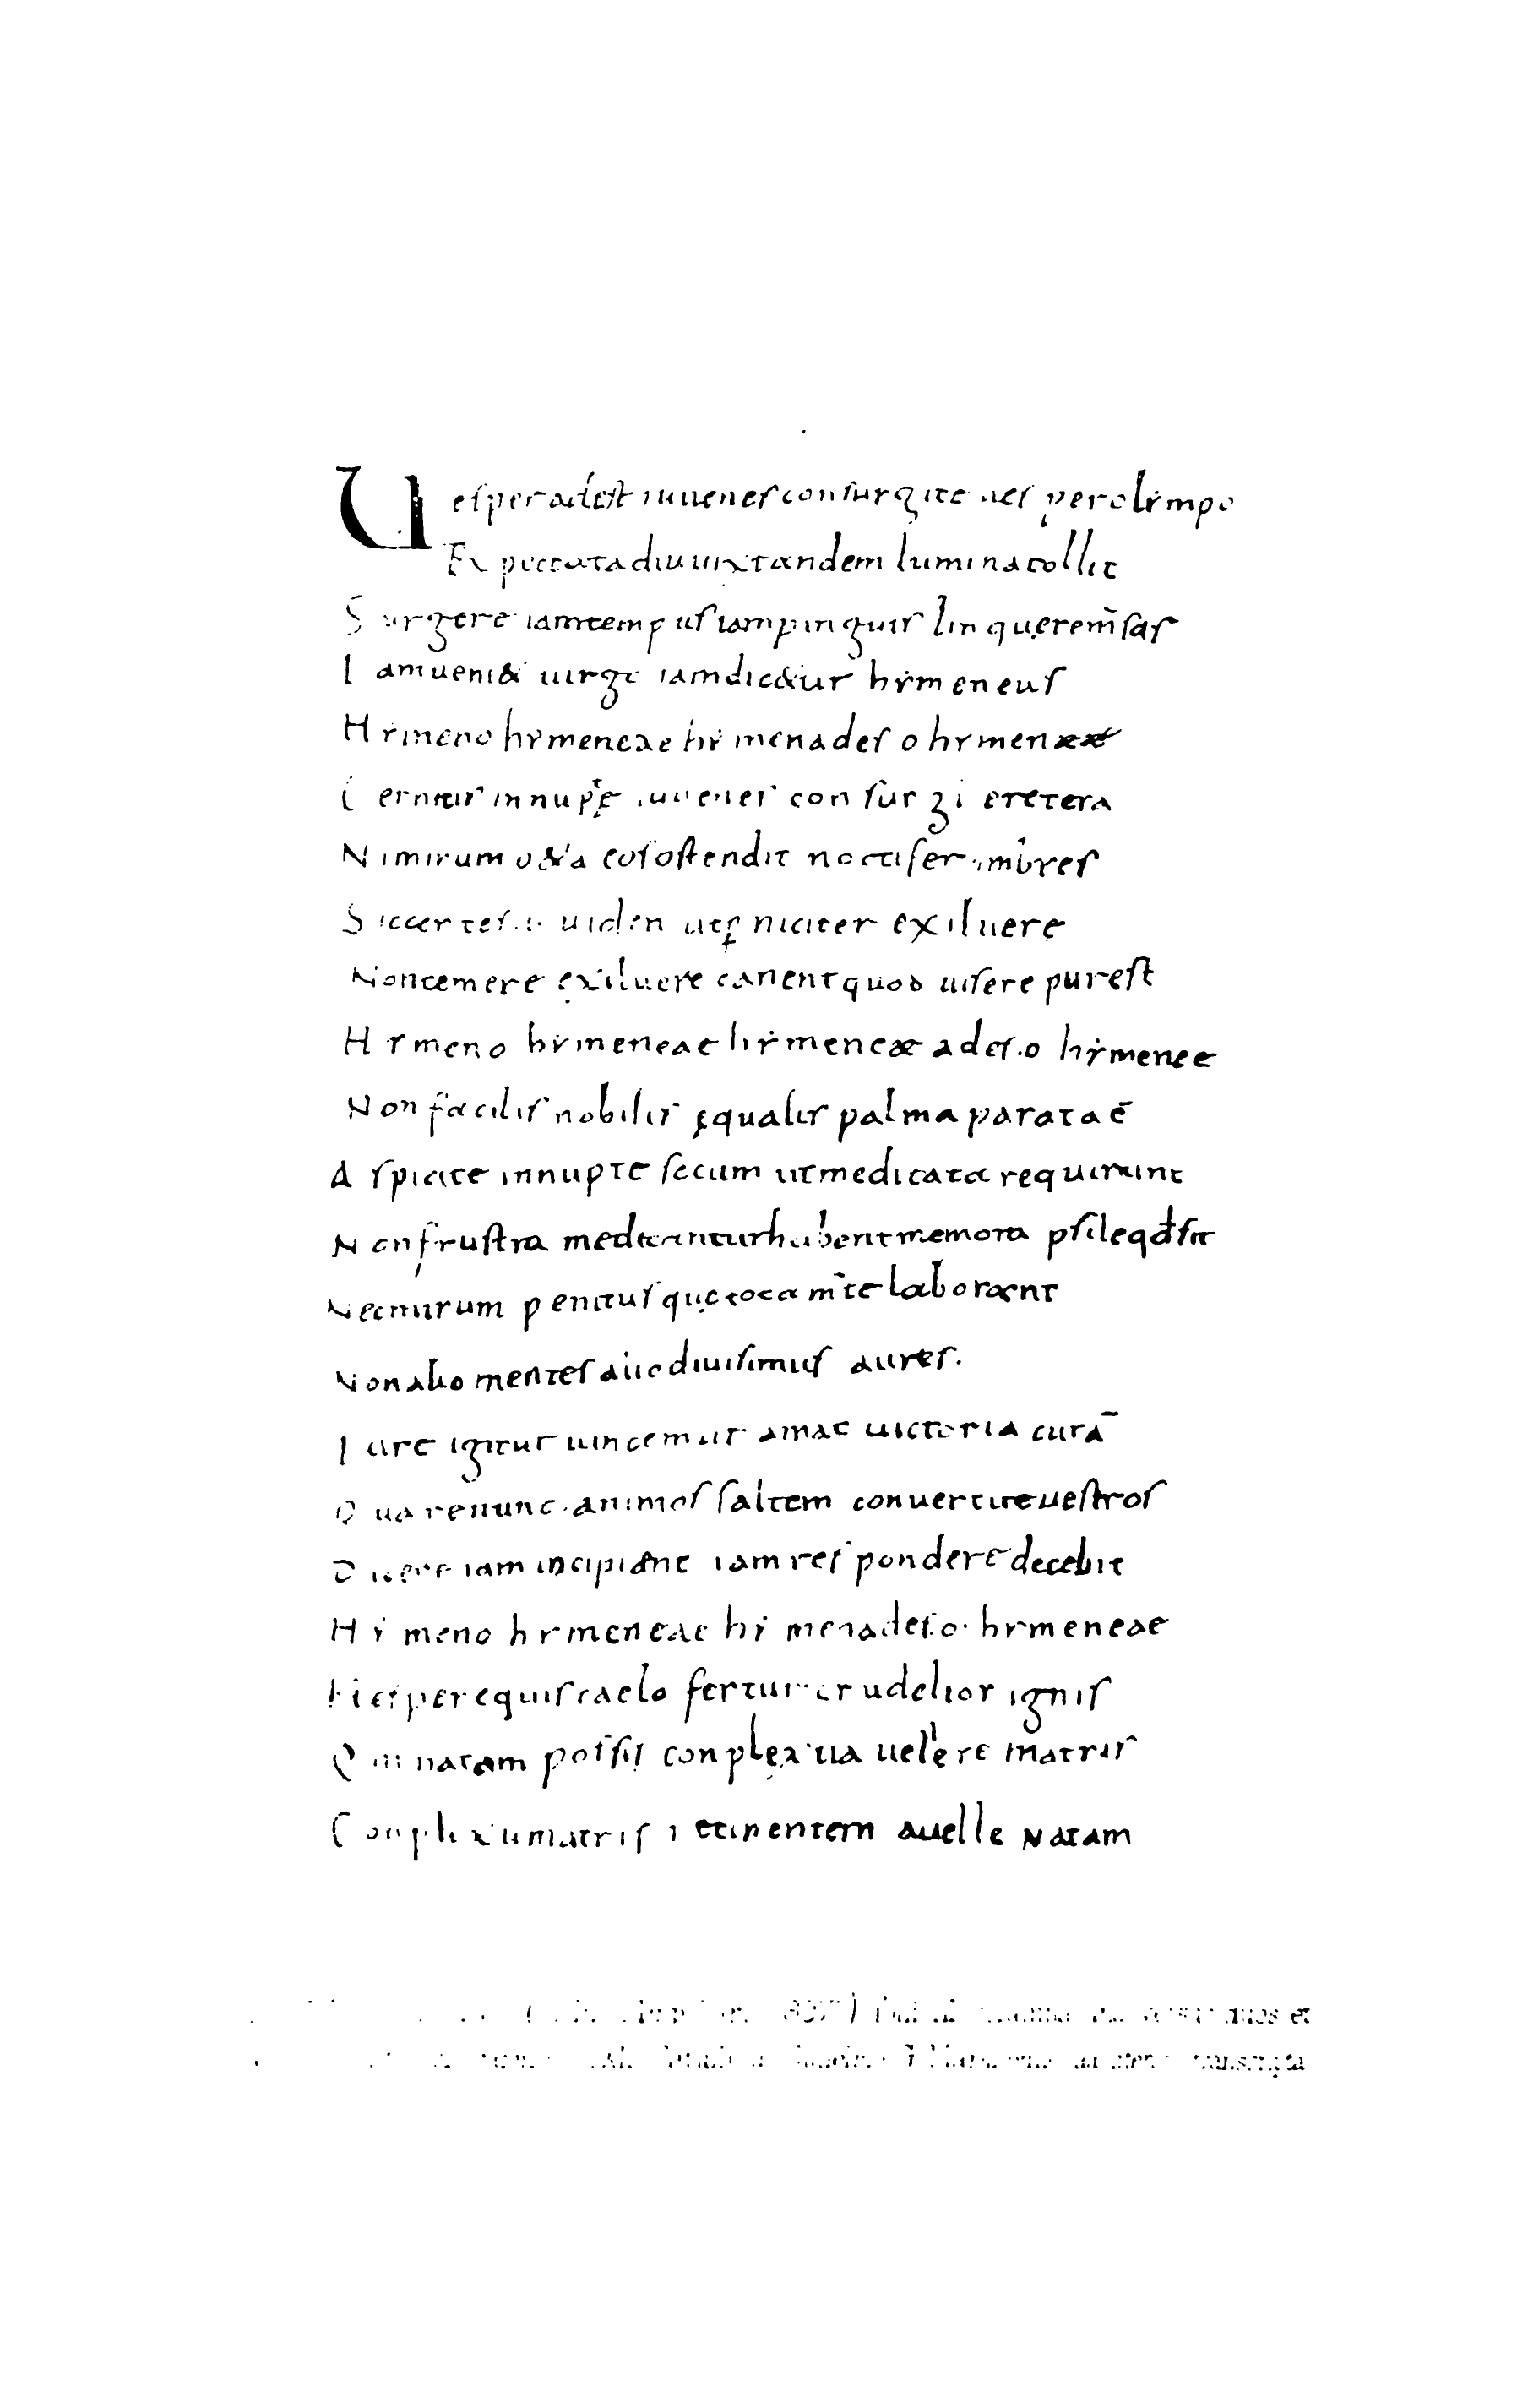 Uesper adest iuuenes consurgite ues per olẏmpo
Expectata diu uix tandem lumina tollit
Surgere iam tempus iam pinguis linquere m̄sas
Iam ueni& uirgo iam dic&ur hẏmeneus
Hẏmen o hẏmeneae hẏmen ades o hẏmenææ
Cernitis innupte iuuenes consurgi eretera
Nimirum o&a eos ostendit noctifer imbres
Sic certes.i. uiden ut ꝑniciter exiluere
Non temere exiluere canent quod uisere purest
Hẏmen o hẏmeneae hẏmeneæ ades.o hẏmenee
Non facilis nobilis ęqualis palma parata ē
Aspicite innupte secum ut medicata requirunt
Non frustra meditantur habent memora psile qđ sit
Nec mirum penitus quę tota m̄te laborant
Non alio mentes alio diuisimus aures.
Iure igitur uincemur amat uictoria curā
Quare nunc animos saltem conuertite uestros
Dicere iam incipiant iam respondere decebit
Hẏmen o hẏmeneae hẏmen ades.o. hẏmeneae
Hiesper equis caelo fertur crudelior ignis
Qui natam possit conplexu a uellere matris
Conplexu matris retinentem auelle natam
quos et
transcripta